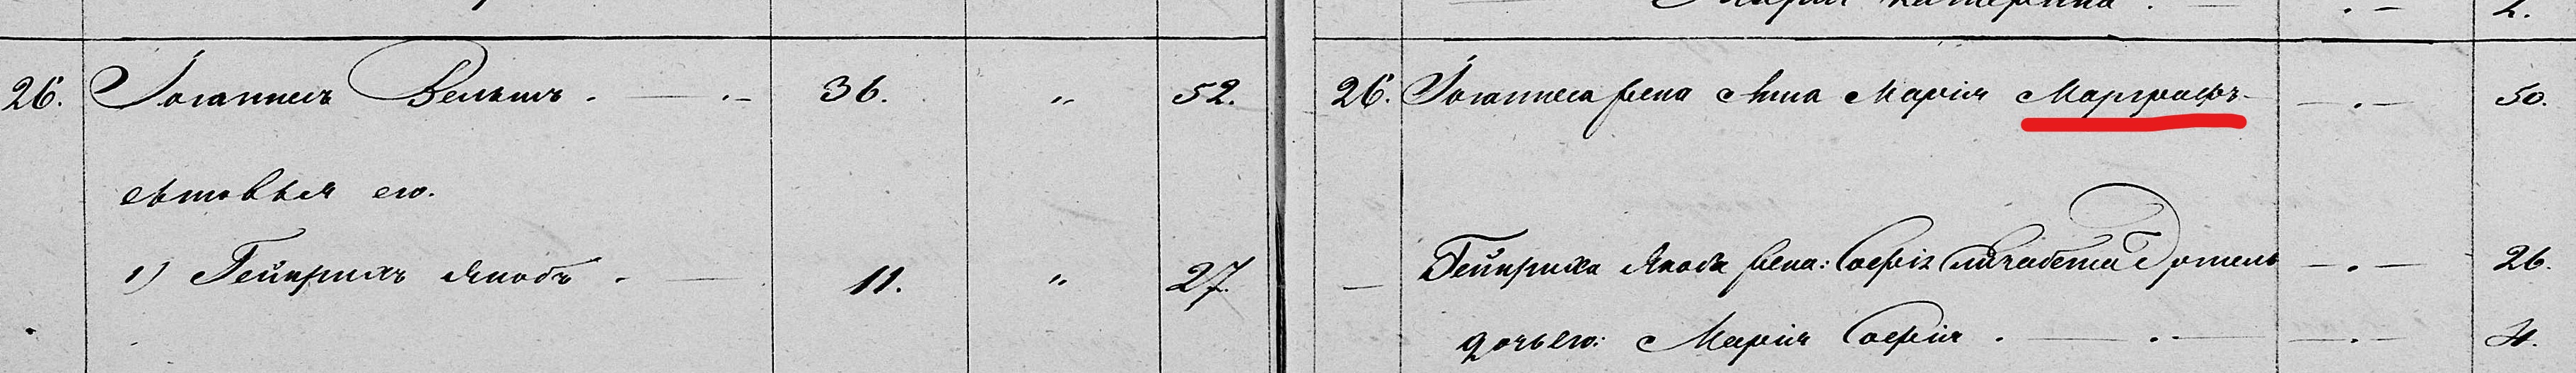 Марія Катерина . — . — 2.
26. Іоганнесъ Вельшъ . — . — 36. „ 52.
сыновья его.
1) Гейнрихъ Якобъ . — 11. „ 27.
26. Іоганнеса жена Анна Марія Марграфъ — . — 50.
— Гейнриха Якоба жена: Софія Елизабета — . — 26.
дочь его: Марія Софія . — . — . — 4.